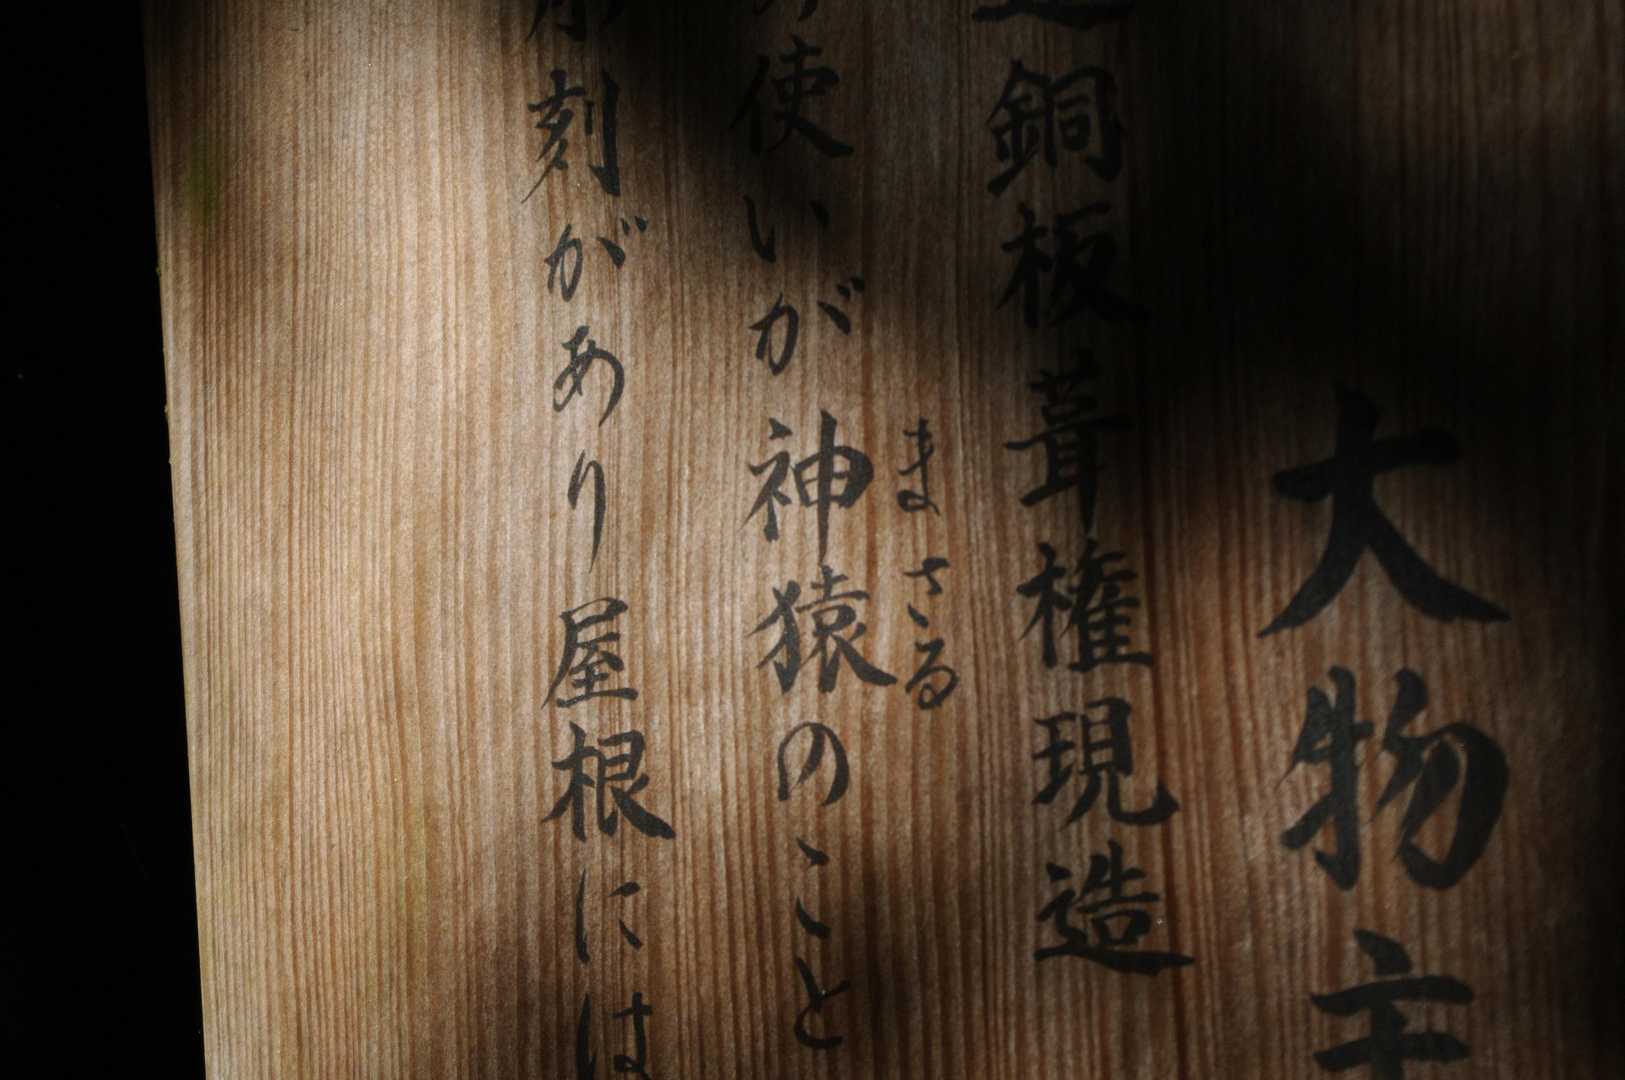 大物主
造銅板葺権現造
使いが神猿のこと
まさる
彫刻があり屋根には